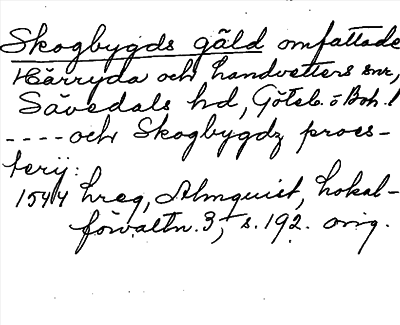 Skogbygds gäld omfattade
Härryda och Landvetters snr,
Sävedals hd, Göteb. o Boh. l
---- och Skogbygdz proes-
terij:
1544 hreg, Almquist, Lokal-
förvaltn. 3, s. 192. orig.